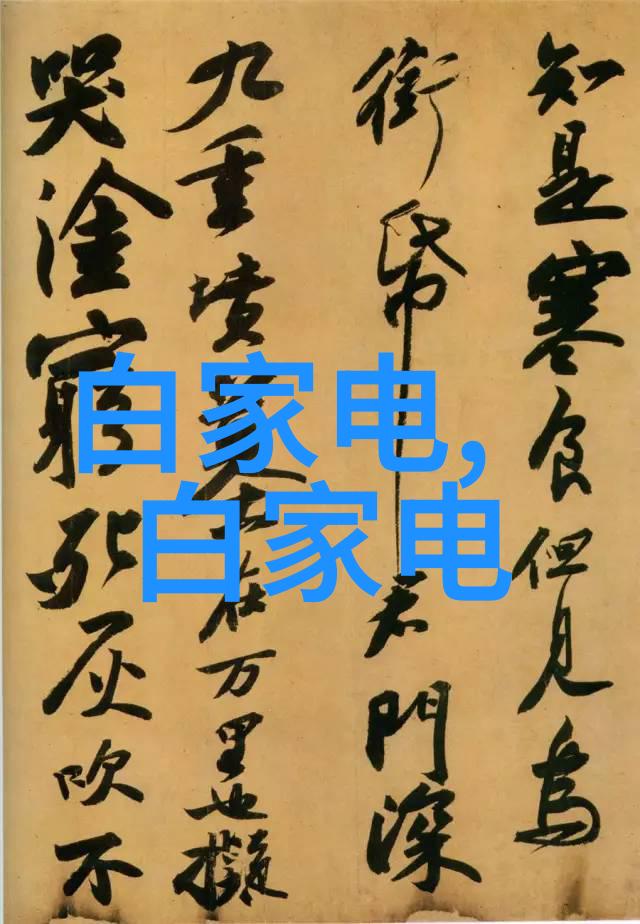 知是寒食但見烏
銜帋君門深
九重墳墓在万里也擬
哭塗窮死灰吹不
白家电,
白家电